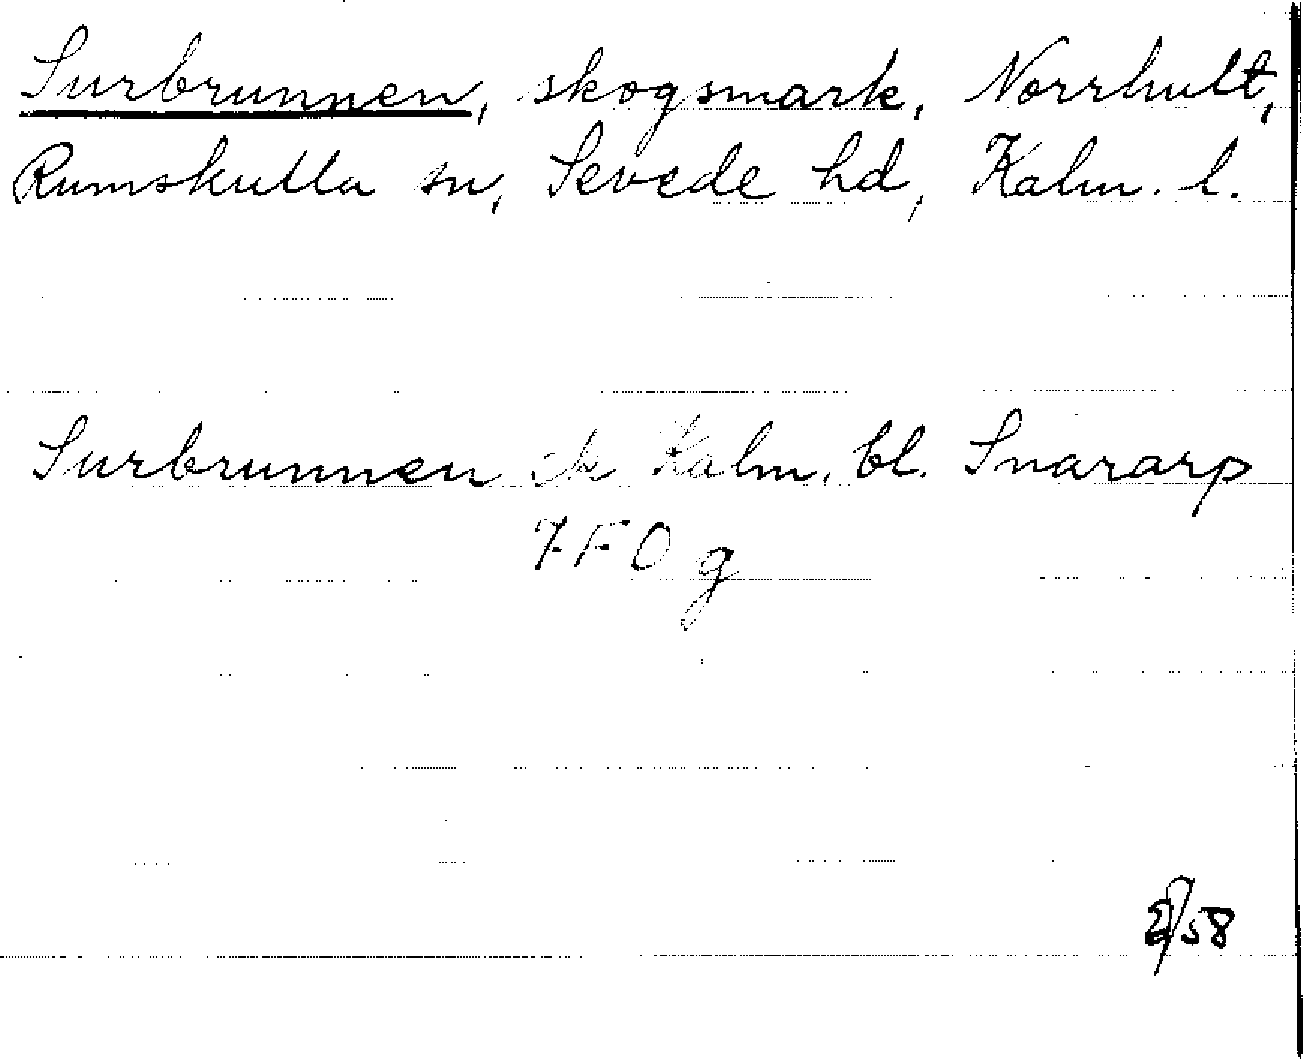 Surbrunnen, skogsmark, Norrhult,
Rumskulla sn, Sevede hd, Kalm. l.
Surbrunnen ek Kalm. bl. Snararp
7F0g
/58